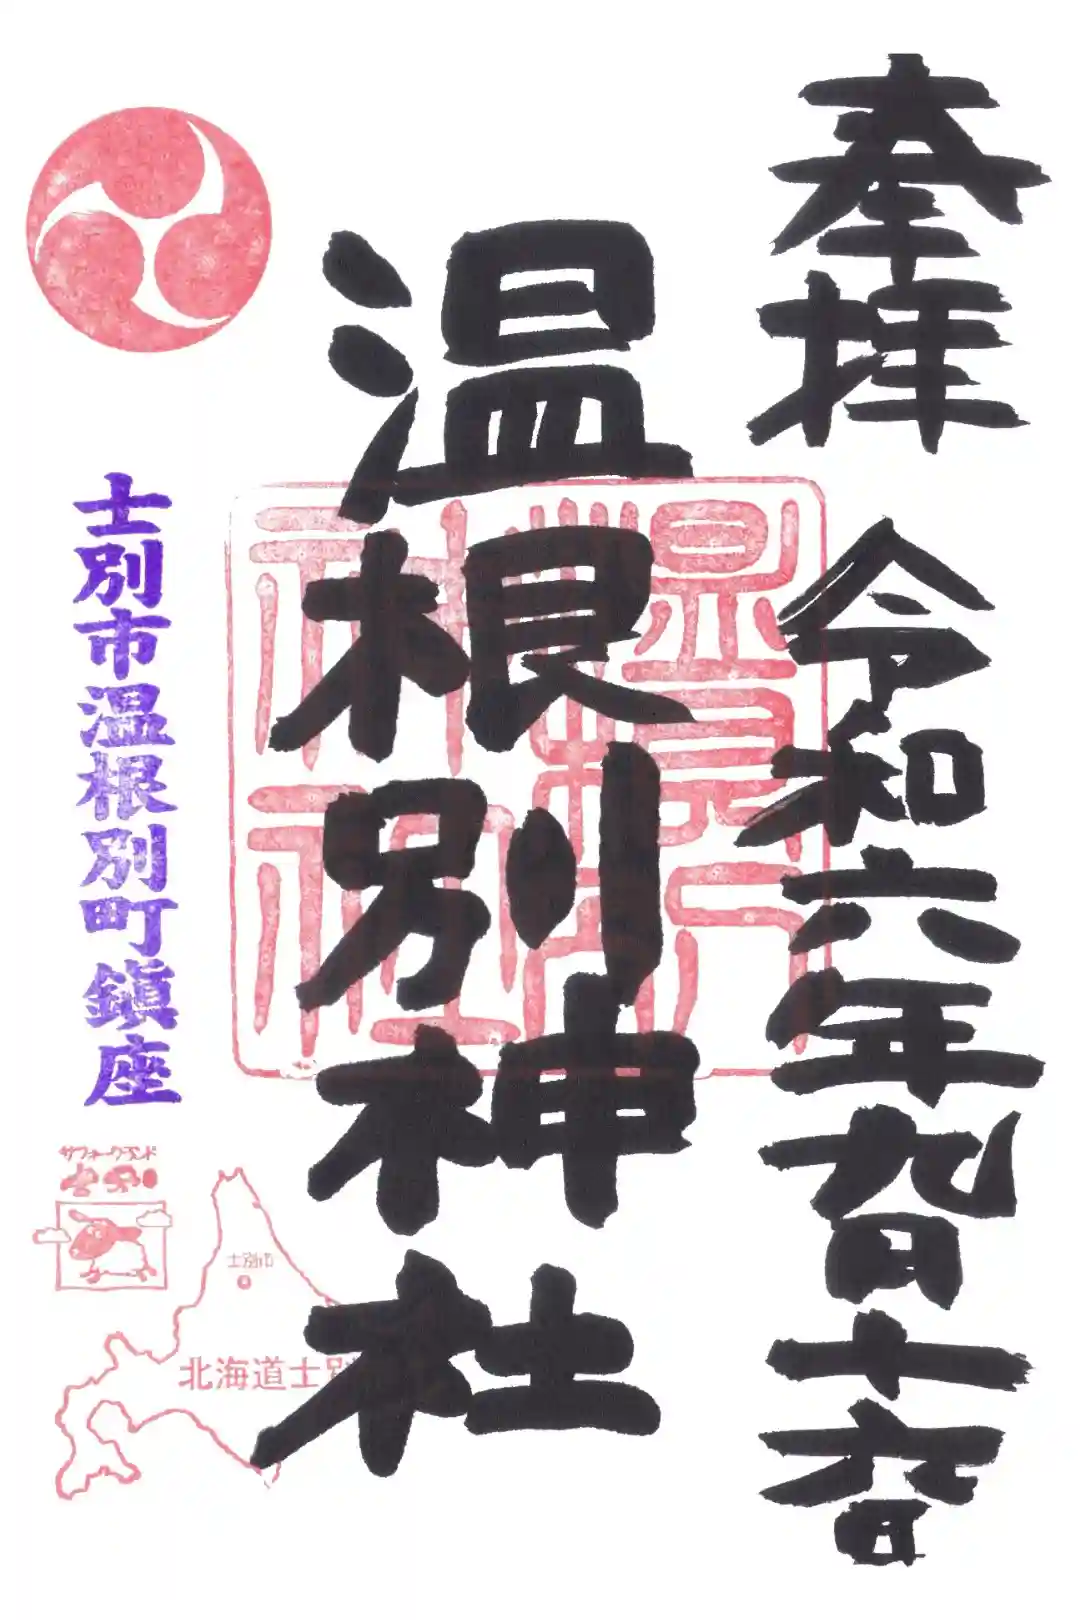 奉拝
令和六年九月十六日
温根別神社
温根別神社
士別市温根別町鎮座
サフォークランド
士別
士別市
北海道士別